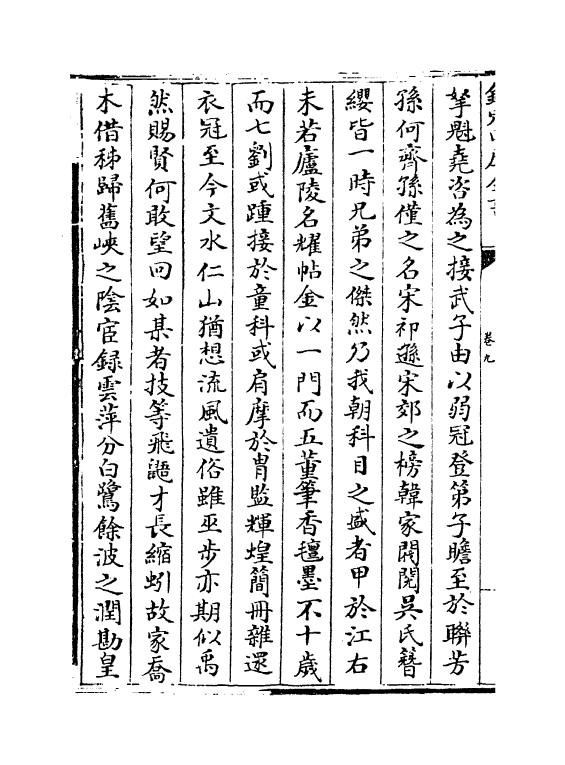 欽定四庫全書
卷九
拏魁堯咨為之接武子由以弱冠登第子瞻至於聯芳
孫何齊孫僅之名宋祁遜宋郊之榜韓家閥閱吳氏簪
纓皆一時兄弟之傑然乃我朝科目之盛者甲於江右
未若廬陵名耀帖金以一門而五董筆香氊墨不十歲
而七劉或踵接於童科或肩摩於胄監輝煌簡冊雜遝
衣冠至今文水仁山猶想流風遺俗雖巫步亦期似禹
然賜賢何敢望回如某者技等飛鼯才長縮蚓故家喬
木借秭歸舊峽之陰宦録雲萍分白鷺餘波之潤勘皇